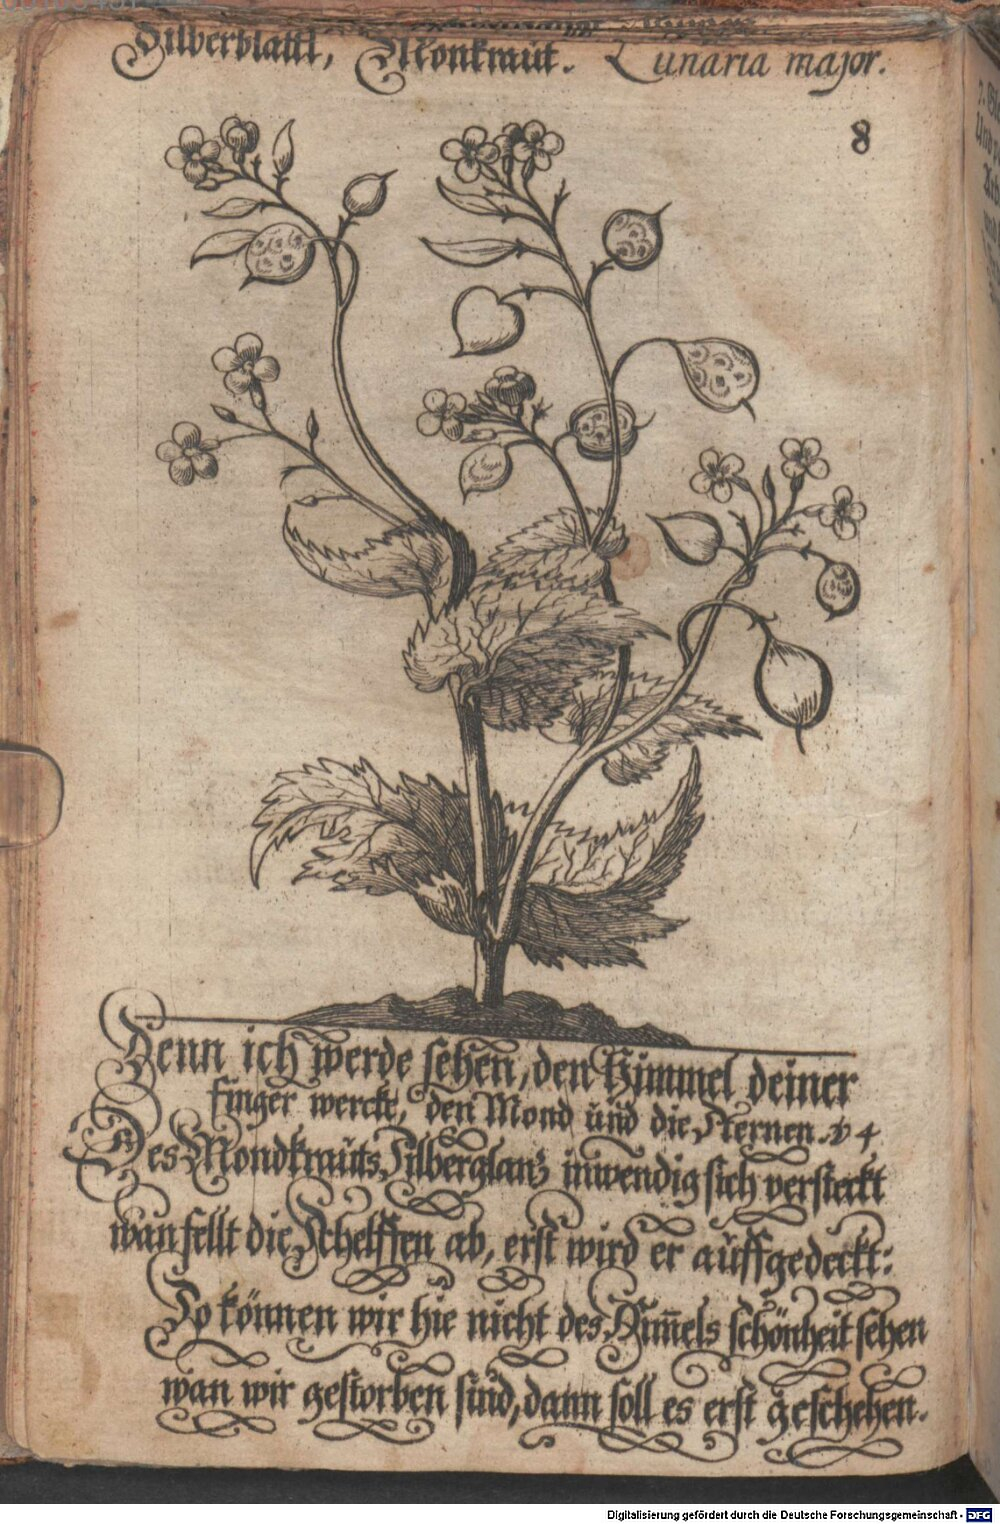 Silberblatt, Monkraut. Lunaria major.
8
Denn ich werde sehen, den Himmel deiner
finger werckt, den Mond und die Sternen. v 4
Des Mondkrauts Silberglantz inwendig sich versteckt
wan fellt die Schelffen ab, erst wird er auffgedeckt:
So können wir hie nicht des Him̄els schönheit sehen
wan wir gestorben sind, dann soll es erst geschehen.
Digitalisierung gefördert durch die Deutsche Forschungsgemeinschaft - DFG